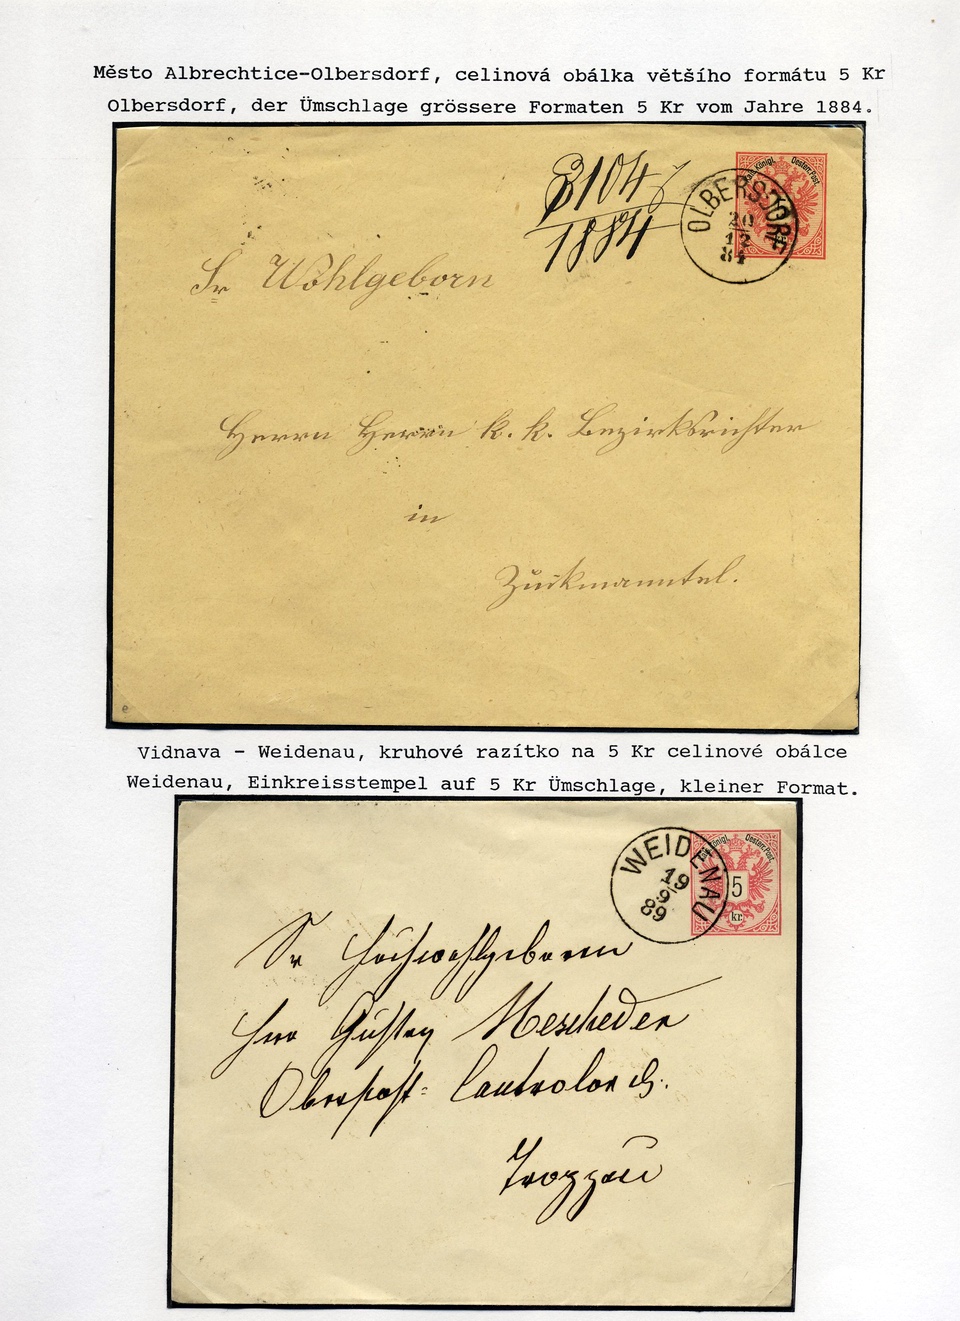 Město Albrechtice-Olbersdorf, celinová obálka většího formátu 5 Kr
Olbersdorf, der Ümschlage grössere Formaten 5 Kr vom Jahre 1884.
3104
1884
Kais. Königl. Oesterr. Post.
OLBERSDORF
20
12
84
Sr Wohlgeborn
Herrn Herrn k. k. Bezirksrichter
in
Zuckmanntel.
e
Vidnava - Weidenau, kruhové razítko na 5 Kr celinové obálce
Weidenau, Einkreisstempel auf 5 Kr Ümschlage, kleiner Format.
Kais. Königl. Oesterr. Post.
5
kr.
WEIDENAU
19
9
89
Sr Hochwohlgeboren
Herr Gustav Mescheder
Oberpost-Controlor
Troppau